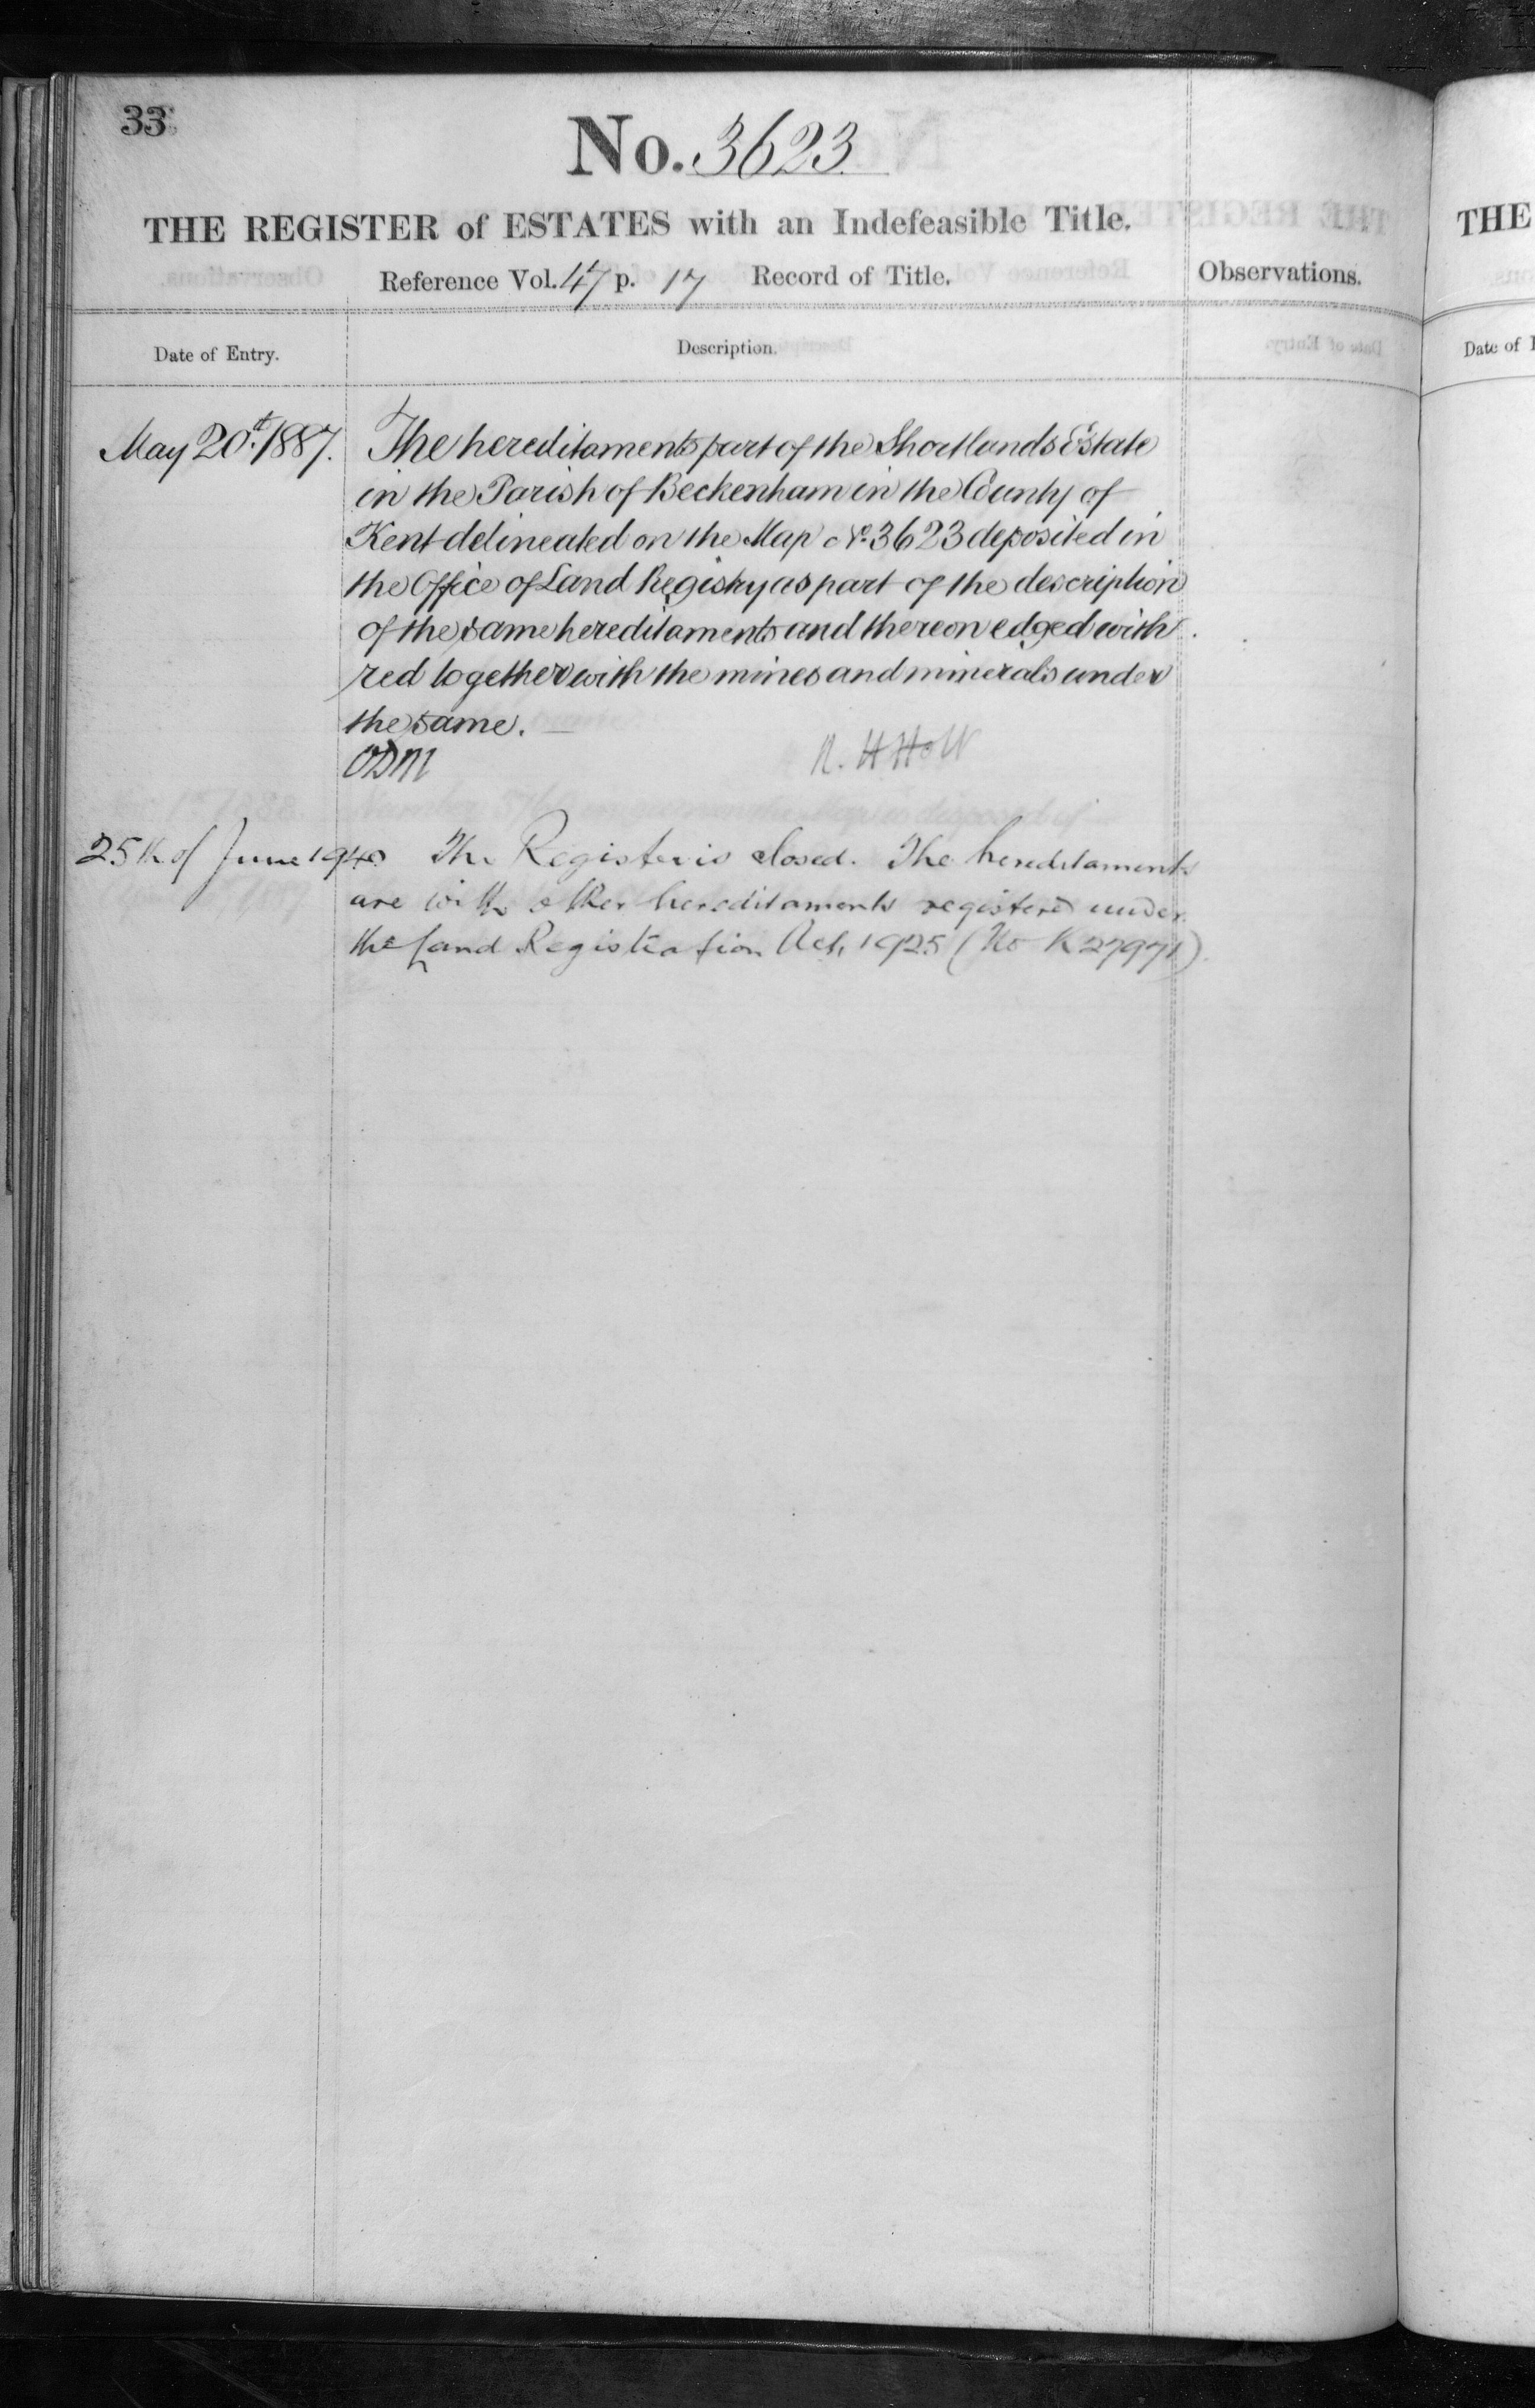 33
No. 3623
THE REGISTER of ESTATES with an Indefeasible Title.
Reference Vol. 47 p. 17 Record of Title.
Observations.
Date of Entry.
Description.
May 20th. 1887.
The hereditaments part of the Shortlands Estate
in the Parish of Beckenham in the County of
Kent delineated on the Map No. 3623 deposited in
the Office of Land Registry as part of the description
of the same hereditaments and thereon edged with
red together with the mines and minerals under
the same. —
ODM
R. H Holt
25th of June 1940
The Register is closed. The hereditaments
are with other hereditaments registered under
the Land Registration Act, 1925 (No K27971).
THE
Date of